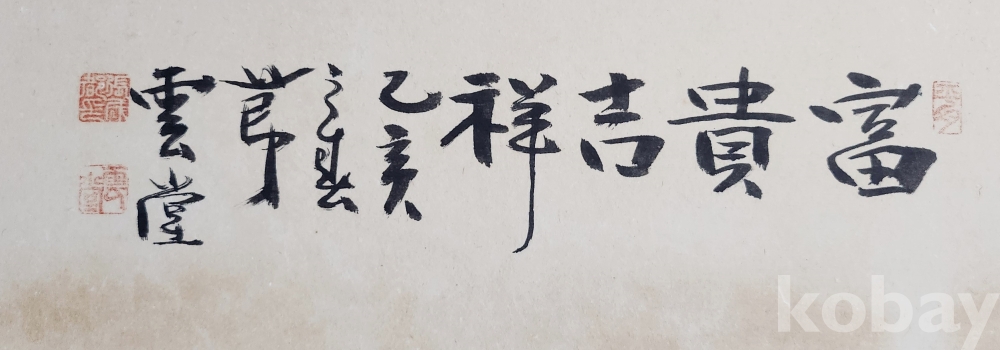 富貴吉祥
乙亥
之春
節
雲堂
kobay